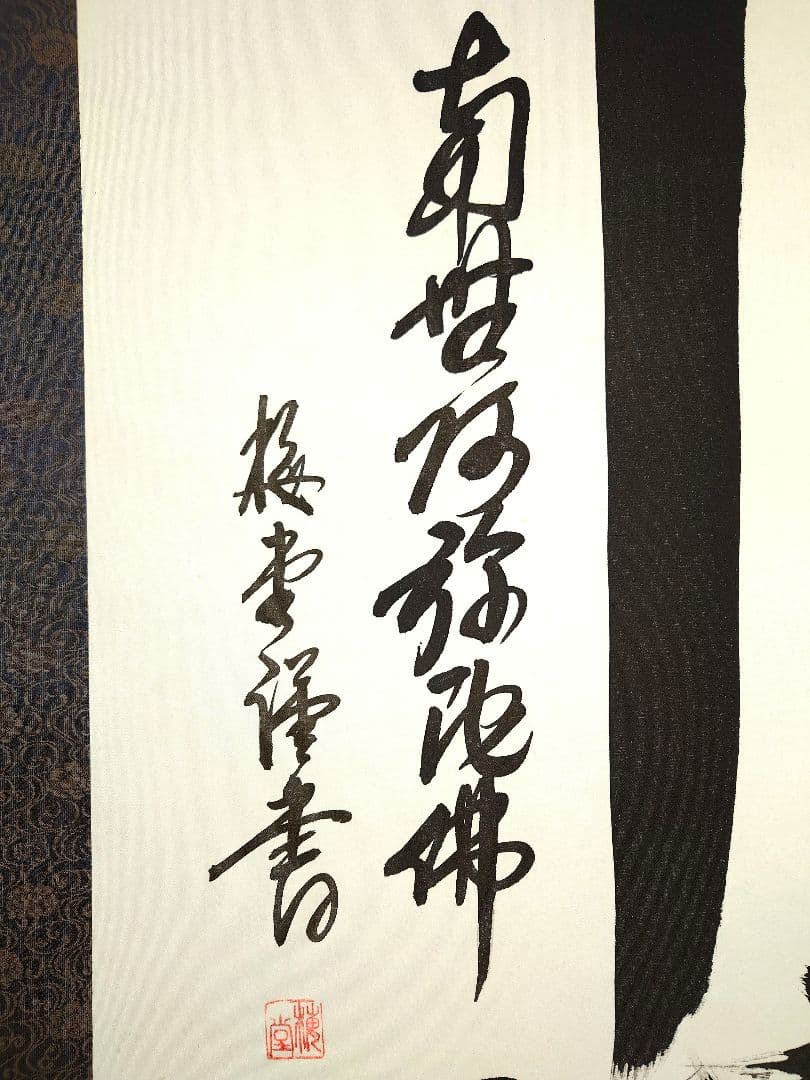 南無阿弥陀佛
梅堂謹書